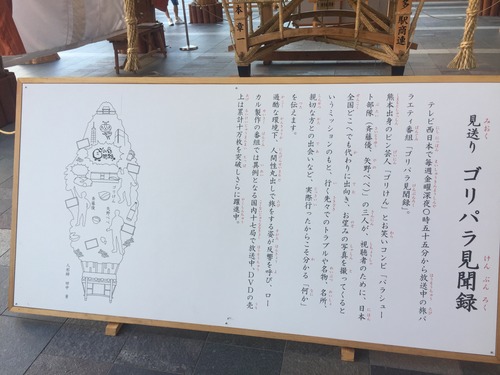 見送り ゴリパラ見聞録
みおく
けんぶんろく
テレビ西日本で毎週金曜深夜〇時五十五分から放送中の旅バ
ラエティ番組「ゴリパラ見聞録」。
熊本出身のピン芸人「ゴリけん」とお笑いコンビ「パラシュー
ト部隊（斉藤優、矢野ぺぺ）」の三人が、視聴者のために、日本
全国どこへでも代わりに出向き、お望みの写真を撮ってくると
いうミッションのもと、行く先々でのトラブルや名物、名所、
親切な方との出会いなど、実際行ったからこそ分かる「何か」
を伝えます。
過酷な環境下、人間性丸出しで旅をする姿が反響を呼び、ロー
カル製作の番組では異例となる国内十七局で放送中。DVDの売
上は累計十万枚を突破しさらに躍進中。
多駅商連